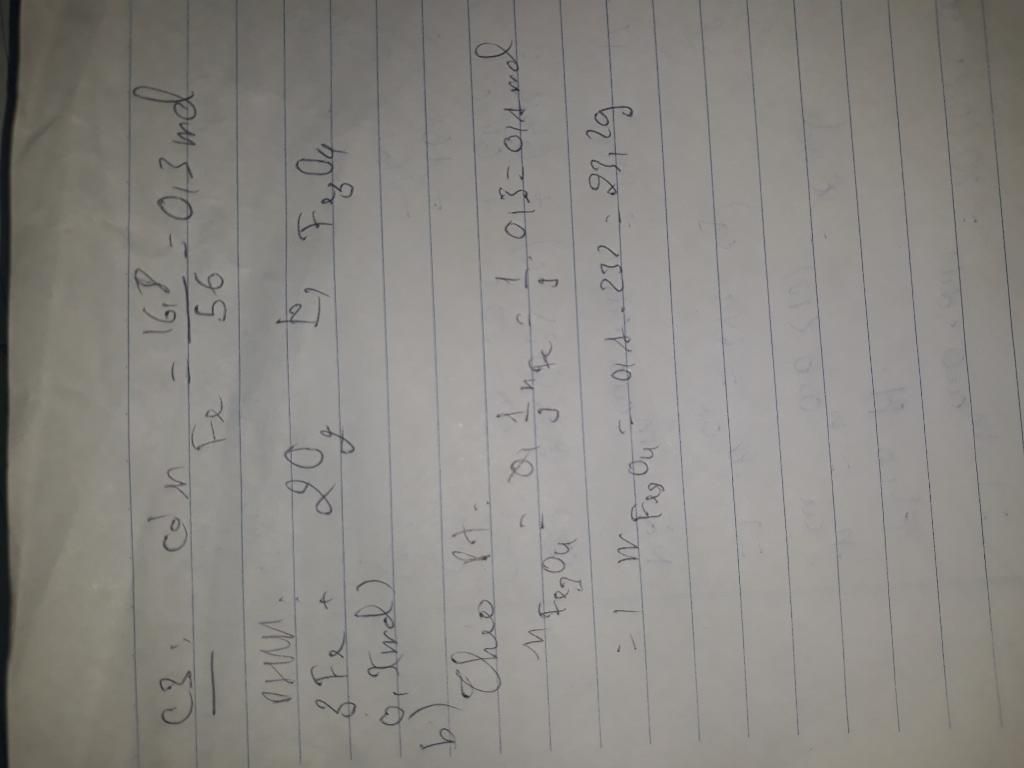 C3: a) n Fe = 16,8/56 = 0,3 mol
PTHH:
3Fe + 2O2 t°→ Fe3O4
0,3(mol)
b) Theo Pt:
n Fe3O4 = 1/3 n Fe = 1/3 . 0,3 = 0,1 mol
=> m Fe3O4 = 0,1 . 232 = 23,2g